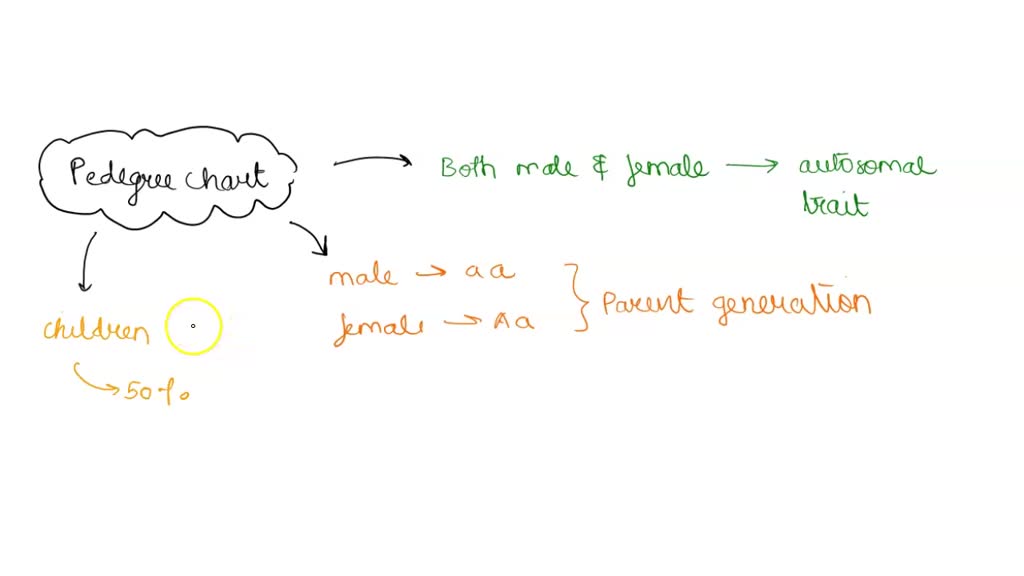 Pedegree chart
Both male & female → autosomal
trait
male → aa
female → Aa
Parent generation
children
50%